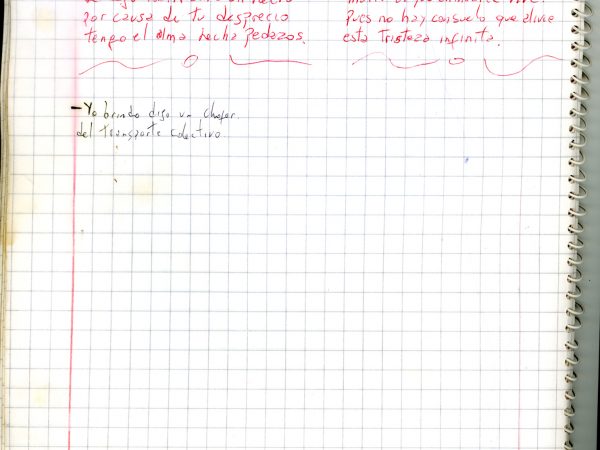 por causa de tu desprecio
tengo el alma hecha pedazos.
Pues no hay consuelo que alivie
esta tristeza infinita.
- Yo brindo dijo un chofer
del transporte colectivo